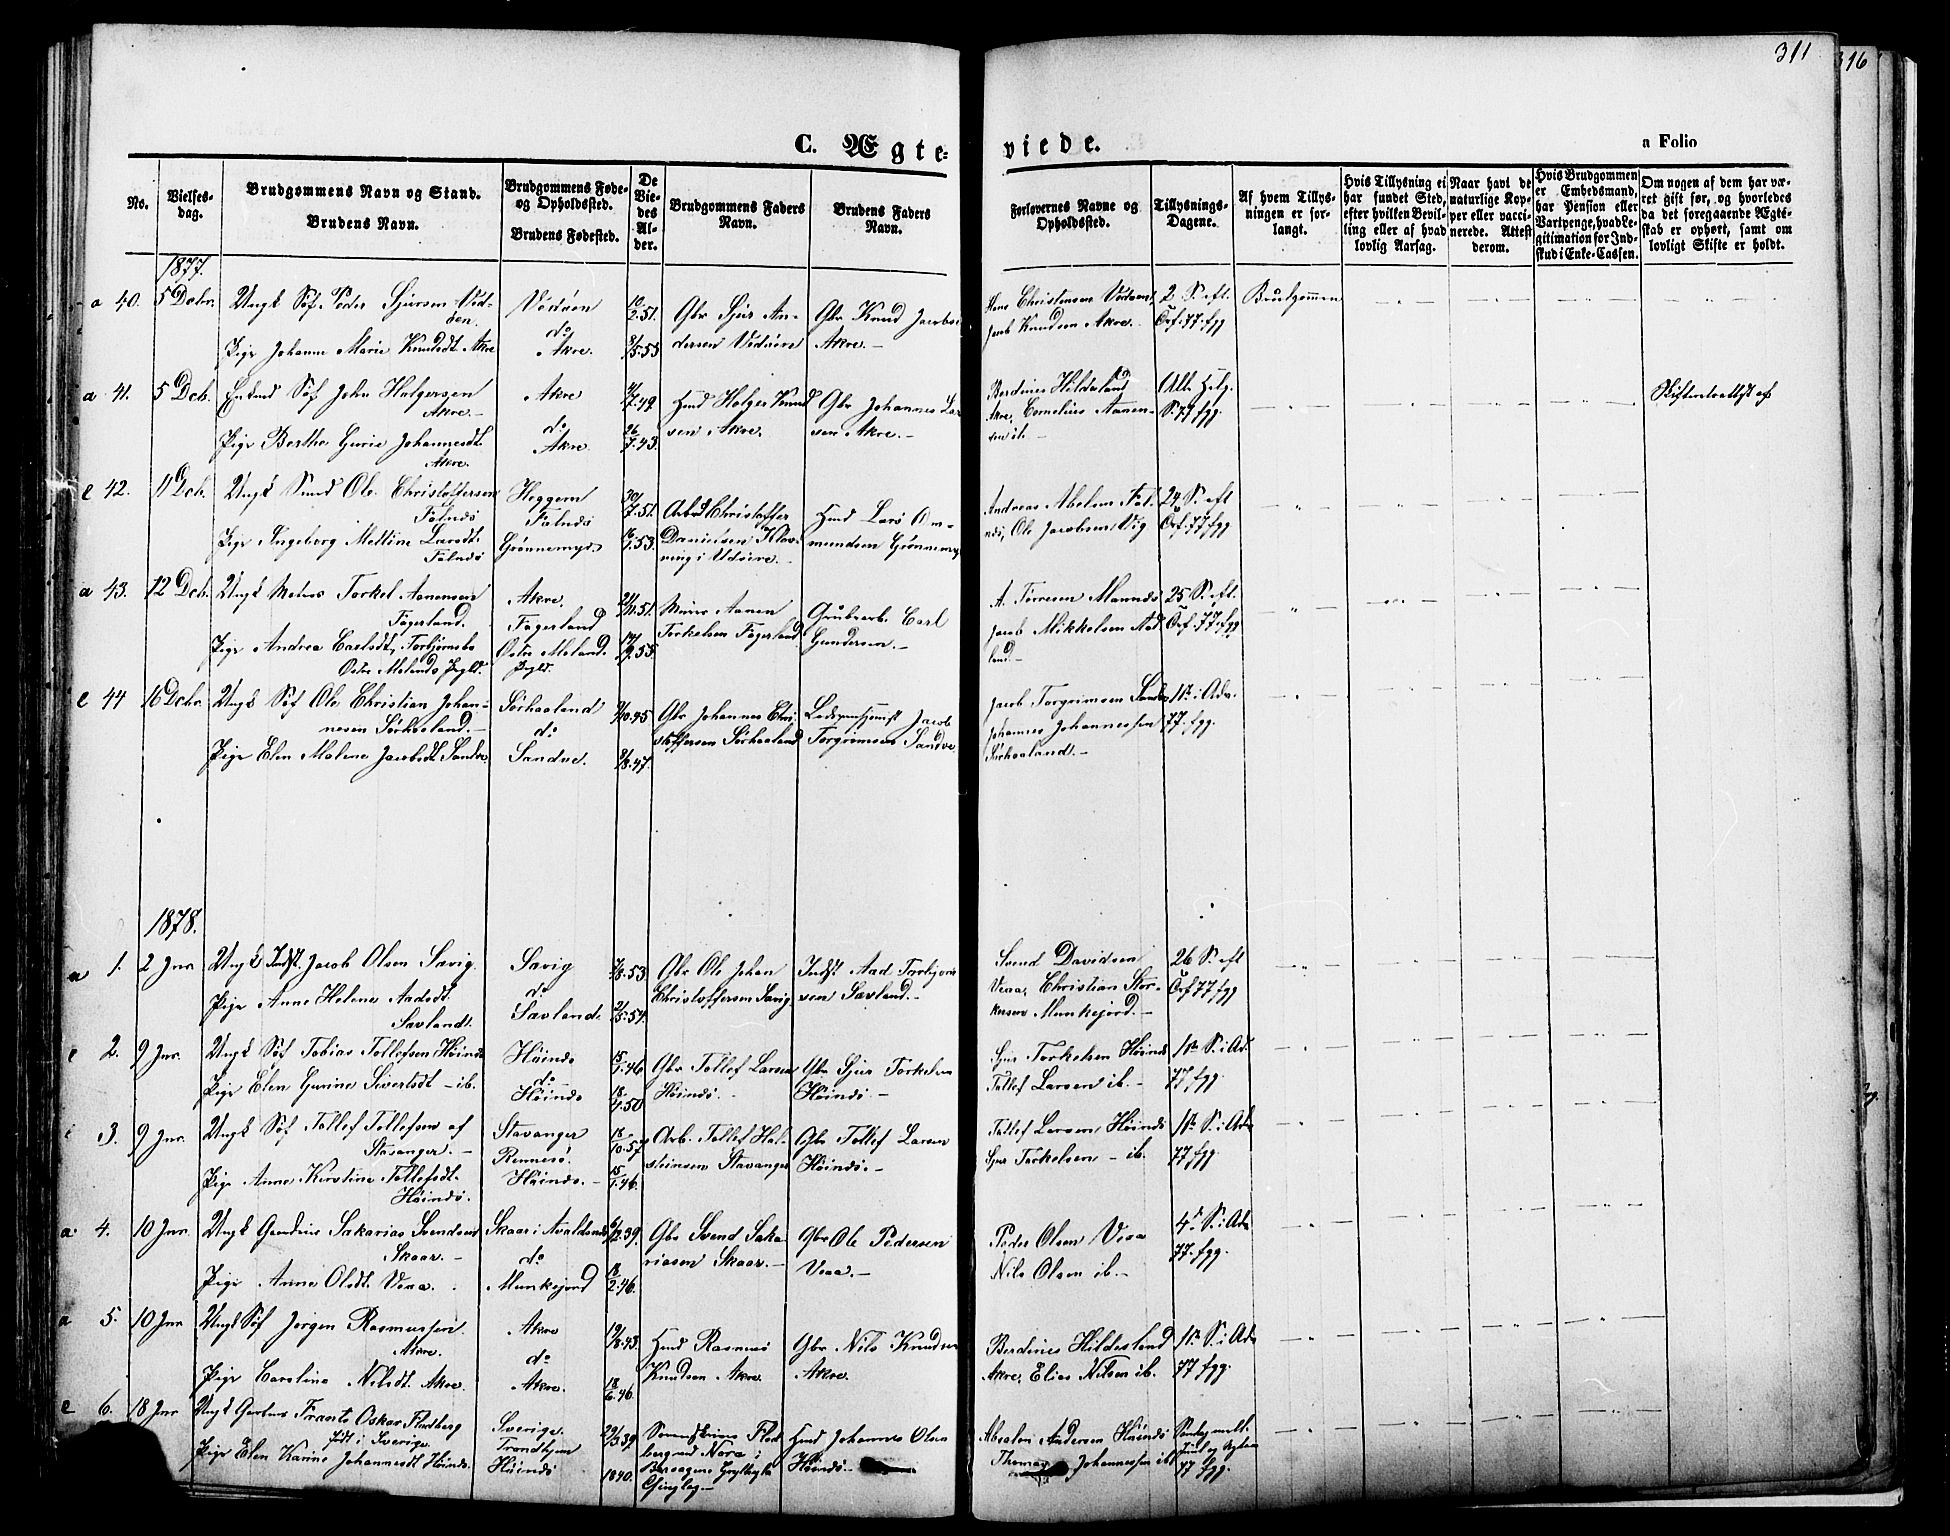 311
316
C. Ægte-
viede.
a Folio
No.
Vielses-
dag.
Brudgommens Navn og Stand.
Brudens Navn.
Brudgommens Føde-
og Opholdssted.
Brudens Fødested.
De
Vie-
des
Al-
der.
Brudgommens Faders
Navn.
Brudens Faders
Navn.
Forlovernes Navne og
Opholdssted.
Tillysnings-
Dagene.
Af hvem Tillys-
ningen er for-
langt.
Hvis Tillysning ei
har fundet Sted,
efter hvilken Bevil-
ling eller af hvad
lovlig Aarsag.
Naar havt de
naturlige Kop-
per eller vacci-
nerede. Attest
derom.
Hvis Brudgommen
er Embedsmand,
har Pension eller
Vartpenge, hvad Le-
gitimation for Ind-
skud i Enke-Cassen.
Om nogen af dem har væ-
ret gift før, og hvorledes
da det foregaaende Ægte-
skab er ophørt, samt om
lovligt Skifte er holdt.
1877.
a 40. 5 Dcbr. Ungk Söf. Peder Sjursen Ved-
öen.
Vedöen
do
Akre.
10/2.51.
8/5.53
Gbr Sjur An-
dersen Vedöen
Gbr Knud Jacobs
Akre.
Pige Johanne Marie Knudsdt. Akre
Hans Christensen Vedöen,
Jacob Knudsen Akre.
2 S. eft.
Trf. 77. fgg
Brudgommen
a 41. 5 Dcb. Enkmd Söf John Holgersen
Akre.
Pige Berthe Gurie Johannesdt.
Akre.
Akre
do
Akre.
7.49.
26/7.43.
Hmd Holger Knud
sen Akre.
Gbr Johannes Lar
sen Akre.
Berdines Hildesland
Akre, Cornelius Aanen-
sen ib.
All. Helg.
S. 77 fgg.
e 42. 11 Dcb. Ungk Smed Ole Christoffersen
Falnes
Pige Ingeborg Mettine Larsdt.
Falnes
Heggem
Falnes
Grönnemyr.
30/7.51.
7.53.
Arbd Christoffer
Danielsen
i Udsire.
Hmd Lars Om-
mundsen Grönnemyr
Andreas Abelsen Fal-
nes, Ole Jacobsen Vig
24 S. eft
Trf. 77 fgg
a 43. 12 Dcb. Ungk Matros Torkel Aanensen
Fagerland.
Pige Andrea Carlsdt, Torbjörnsbo
Ostre Moland
Akre.
Fagerland
Ostre Moland.
11.51.
9.55.
Aanen
Torkelsen Fagerland
Grubearb. Carl
Gundersen.
A. Törresen Mannes
Jacob Mikkelsen Aad-
land.
25 S. eft.
Trf. 77. fgg
e 44 16 Dcbr. Ungk Söf Ole Christian Johan-
nesen Sörhaaland.
Pige Elen Malene Jacobsdt. Sandve
Sörhaaland
do
Sandve.
10.45
8.47.
Gbr Johannes Chri
stoffersen Sörhaaland
Jacob
Torgrimsen Sandve
Jacob Torgrimsen Sandve
Johannes Johannessen
Sörhaaland.
1te i Adv.
77. fgg.
1878.
a 1. 2 Jnr Ungk Indst. Jacob Olsen Sævig
Pige Anne Helene Aadsdt.
Sævland.
Sævig
do
Sævland.
8.53
5.54.
Gbr Ole Johan
Christoffersen Sævig
Indst Aad Torbjörn
sen Sævland.
Svend Davidsen
Veaa, Christian Stor-
kersen Munkejord.
26 S. eft
Trf 77 fgg
e 2. 9 Jnr. Ungk Söf Tobias Tollefsen Höines
Pige Elen Gurine Sivertsdt - ib.
Höines
do
Höines
15/1.46
18/4.50
Gbr Tollef Larsen
Höines.
Gbr Sjur Torkelsen
Höines.
Sjur Torkelsen Höines
Tollef Larsen ib.
1te S. i Ad.
77 fgg.
e 3. 9 Jnr. Ungk Söf Tollef Tollefsen af
Stavanger.
Pige Anne Kirstine Tollefsdt.
Höines.
Stavanger
Rennesö.
Höines.
18/10.57
15/1.46.
Arb. Tollef Hal-
steinsen Stavanger
Gbr Tollef Larsen
Höines.
Tollef Larsen Höines
Sjur Torkelsen - ib.
1te S. i Adv
77 fgg.
a. 4. 10 Jnr. Ungk Sakarias Svendsen
Skaar.
Pige Anne Olsdt. Veaa.
Skaar i Avaldsnes
do
Munkejord
12.39.
18/2.46.
Gbr Svend Saka-
riasen Skaar.
Gbr Ole Pedersen
Veaa.
Peder Olsen Veaa
Nils Olsen ib.
4de S. i Adv
77. fgg.
a 5. 10 Jnr Ungk Söf Jörgen Rasmussen
Akre.
Pige Caroline Nilsdt. Akre.
Akre
do
Akre.
19/8.43.
18/6.46.
Hmd Rasmus
Knudsen Akre.
Gbr Nils Knudsen
Akre.
Berdines Hildesland
Akre, Elias Nilsen ib.
1te S. i Adv
77 fgg.
e 6. 18 Jnr Ungk Frants Oskar Flodberg
født i Sverige.
Pige Elen Karine Johannesdt Höines.
Sverige.
Trondhjem
Höines
29/3.39
1840.
Hmd Johannes Olsen
Höines.
Absalon Andersen Höines
Thomas Johannessen ib.
Söndag mell.
77 fgg.